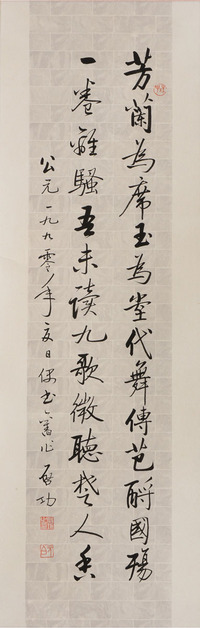 芳蘭為席玉為堂代舞傳芭酹國殤
一卷離騷吾未讀九歌微聽楚人香
公元一九九零年夏日偶書舊作 啟功